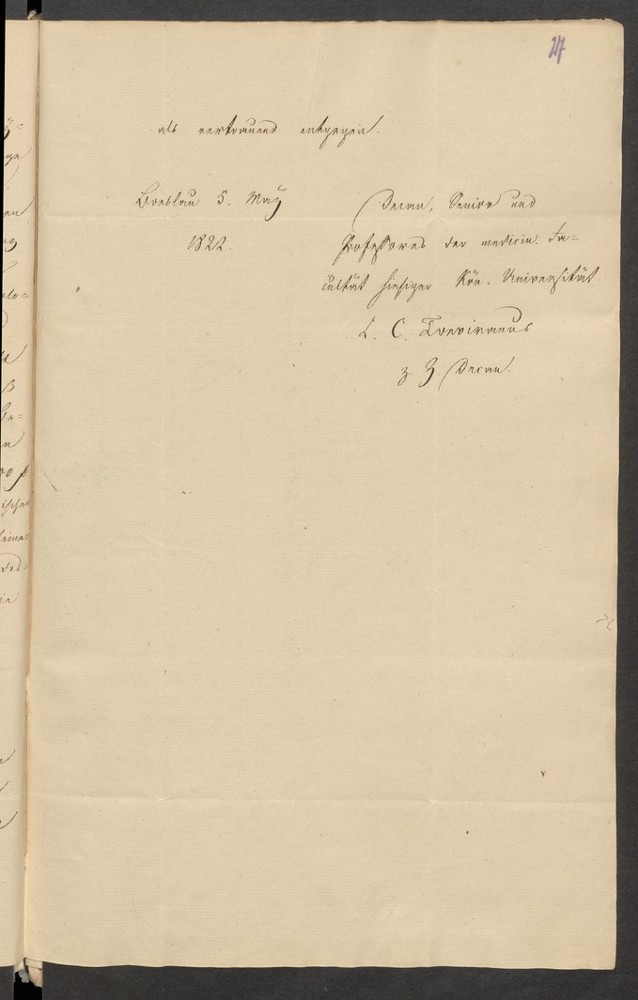 24
als vertrauend entgegen.
Breslau 5. May
1822.
Decan, Senior und
Professores der medicin. Fa-
cultät hiesiger Kön. Universität.
L. C. Treviranus
z. Z. Decan.